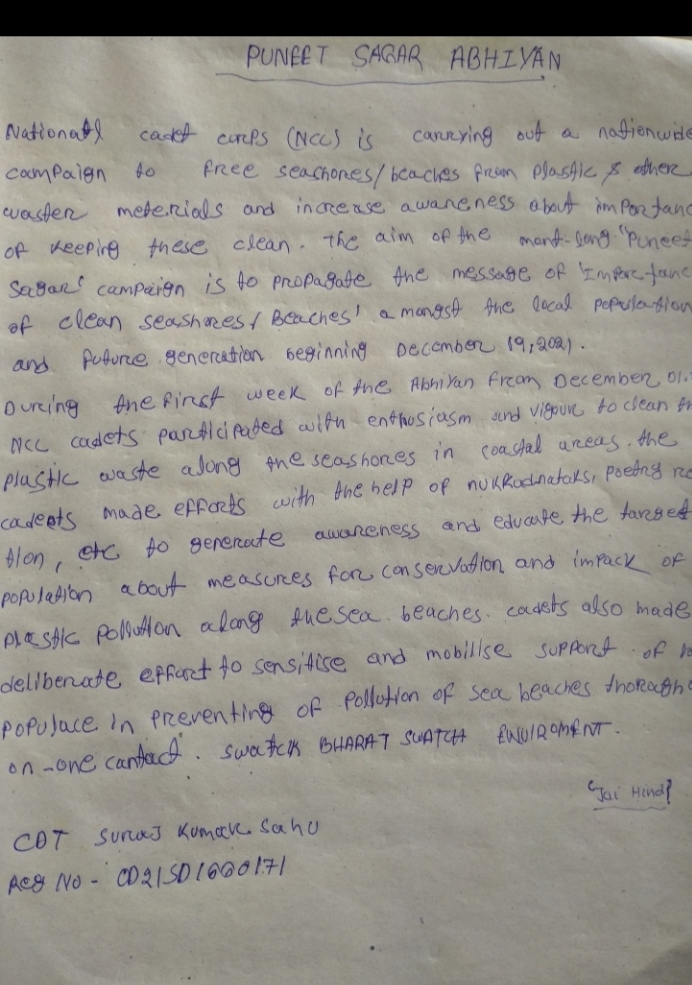 PUNEET SAGAR ABHIYAN
National cadet corps (NCC) is carrying out a nationwide
campaign to free seashores/beaches from plastic & other
waster meterials and increase awareness about importanc
of keeping these clean. The aim of the mont-long "Puneet
Sagar' campaign is to propagate the message of 'Importanc
of clean seashores/Beaches' amongst the local population
and future generation beginning December 19,2021.
During the first week of the Abhiyan from December 01.
NCC cadets participated with enthusiasm and vigour to clean th
plastic waste along the seashores in coastal areas. the
cadeets made efforts with the help of nukkadnataks, poetry re
tion, etc to generate awareness and educate the targed
population about measures for conservation and impack of
plastic pollution along the sea beaches. cadets also made
deliberate effort to sensitise and mobilise support of lo
populace in preventing of pollution of sea beaches thorough
on-one contact. Swatch BHARAT SWATCH ENVIROMENT.
"Jai Hind"
CDT Suraj Kumar Sahu
Reg No -